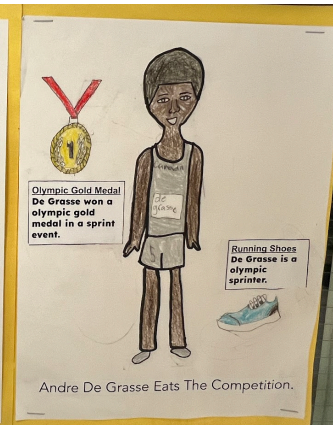 1
Olympic Gold Medal
De Grasse won a
olympic gold
medal in a sprint
event.
Canada
de
grasse
Running Shoes
De Grasse is a
olympic
sprinter.
Andre De Grasse Eats The Competition.